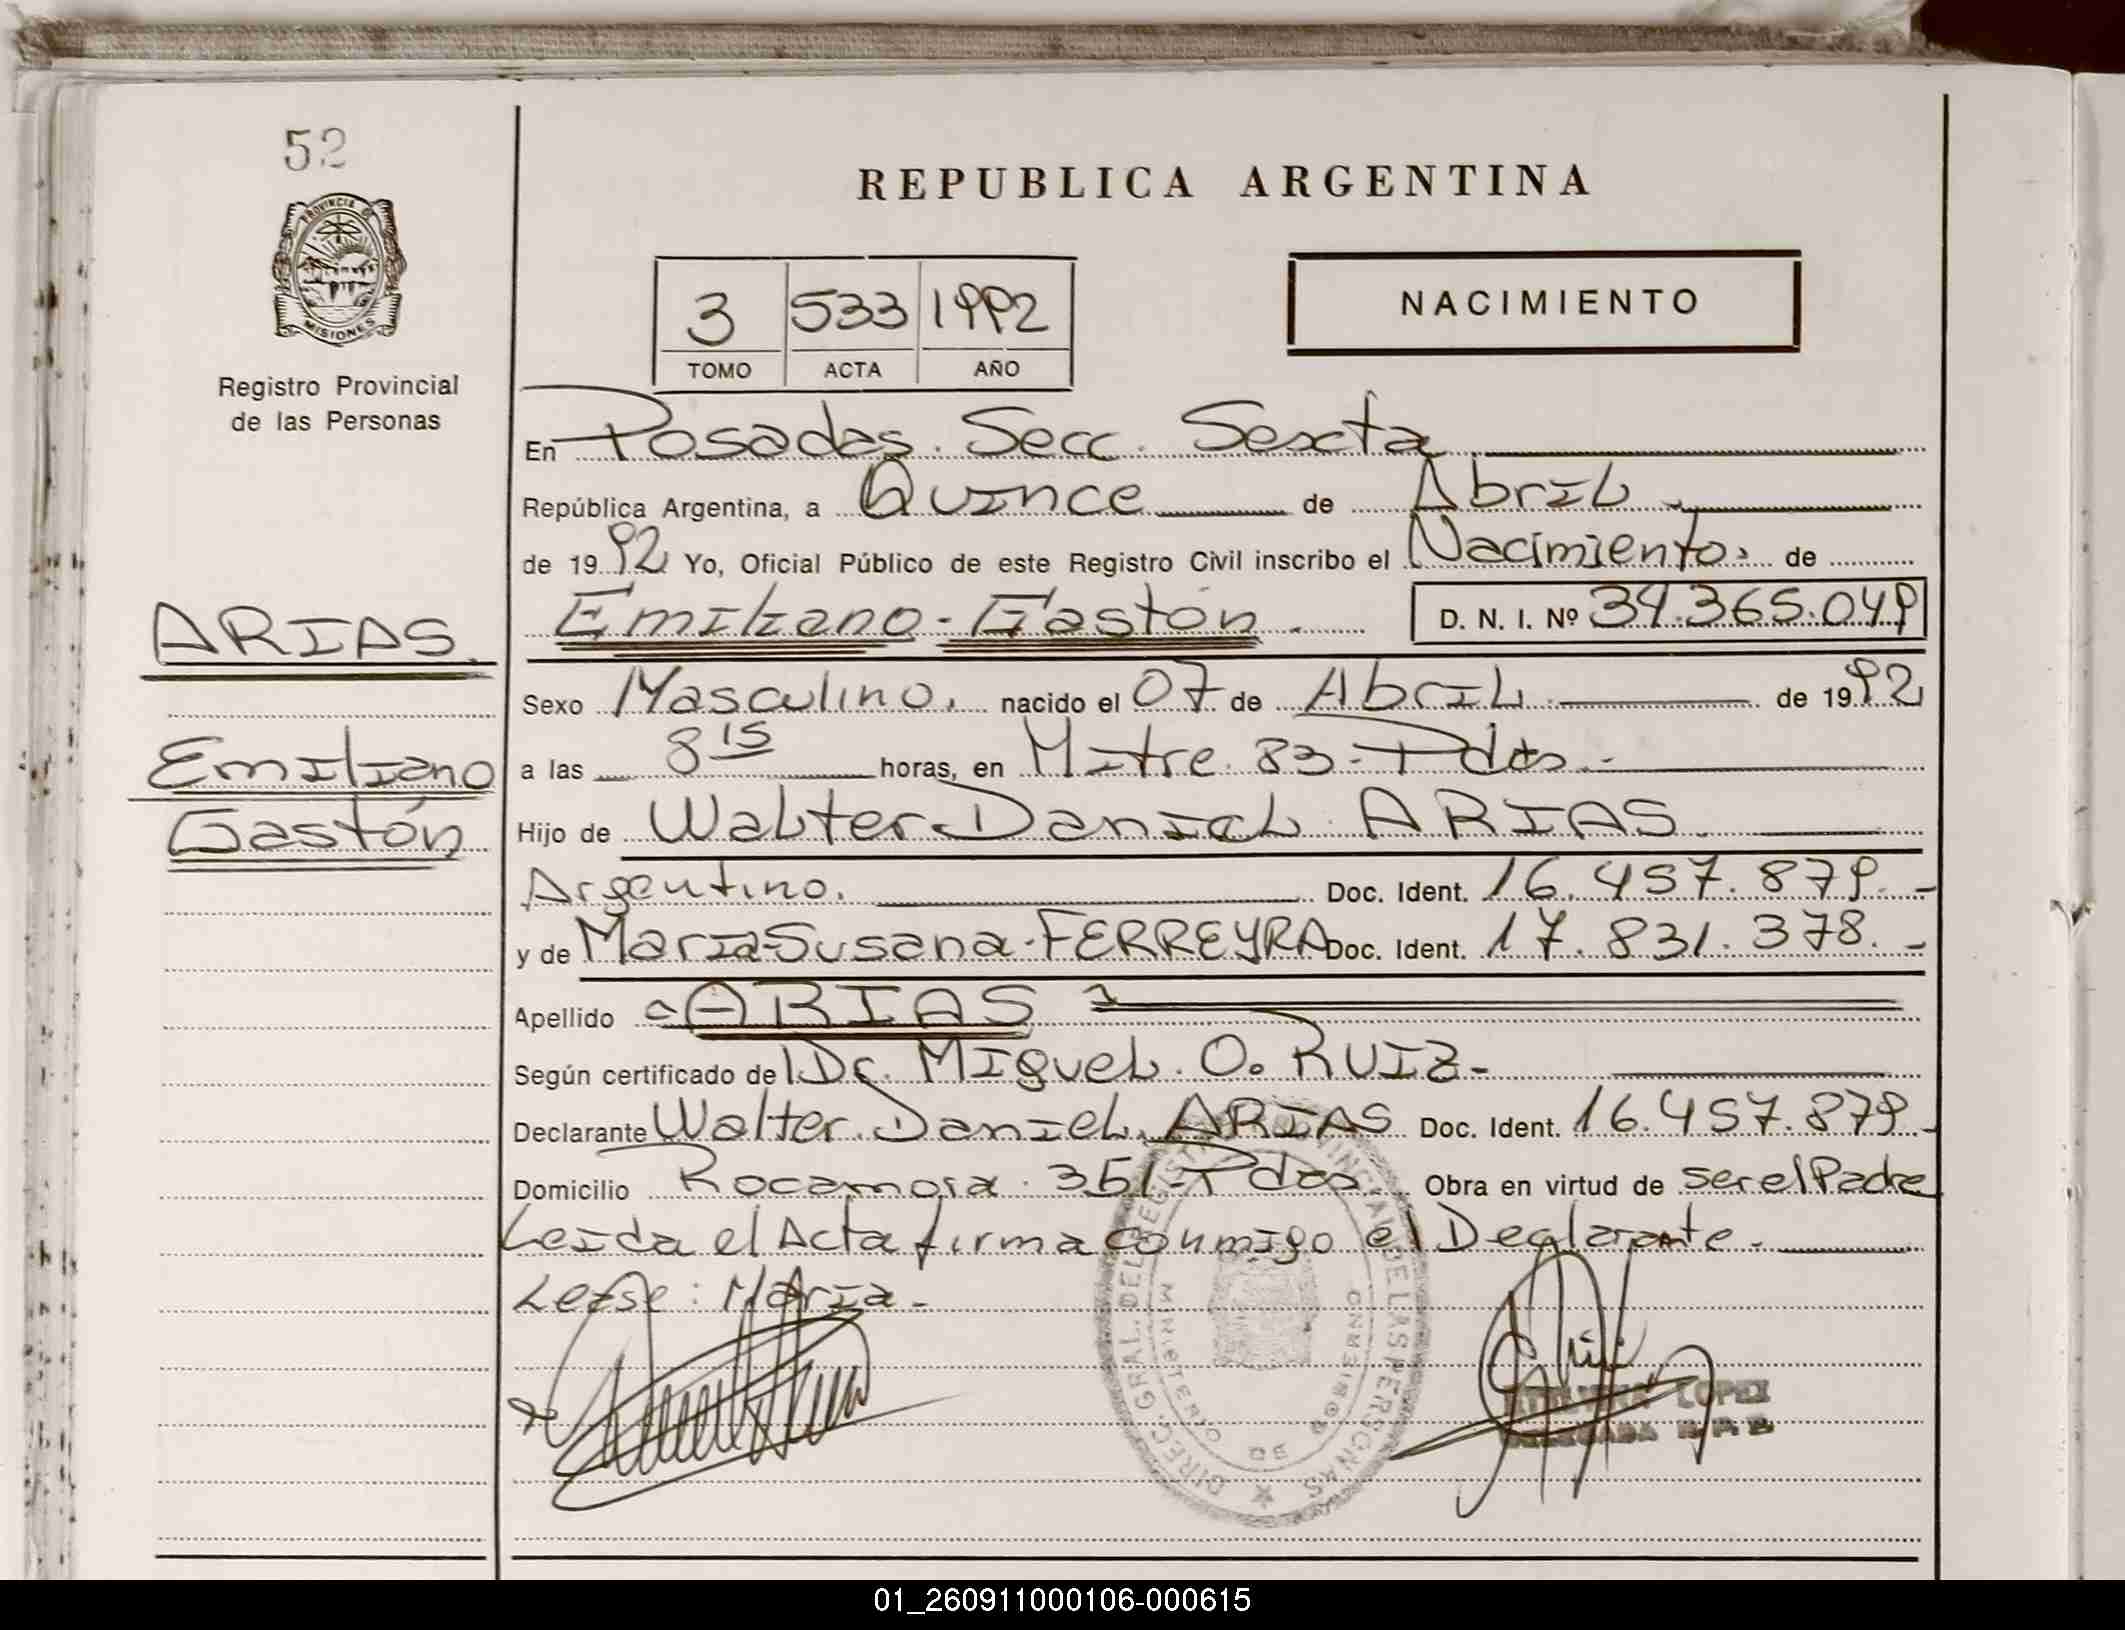 52
REPUBLICA ARGENTINA
PROVINCIA DE
MISIONES
Registro Provincial
de las Personas
3 533 1992
TOMO ACTA AÑO
NACIMIENTO
En Posadas. Secc. Sexta
República Argentina, a Quince de Abril
de 1992 Yo, Oficial Público de este Registro Civil inscribo el Nacimiento de
Emiliano - Gastón. D. N. I. Nº 34.365.049
ARIAS
Emiliano
Gastón
Sexo Masculino. nacido el 07 de Abril de 1992
a las 8 15 horas, en Mitre 83 - Pdas.-
Hijo de Walter Daniel ARIAS
Argentino. Doc. Ident. 16.457.879.-
y de María Susana FERREYRA Doc. Ident. 17.831.378.-
Apellido ARIAS
Según certificado del Dr. Miguel O. RUIZ-
Declarante Walter Daniel ARIAS Doc. Ident. 16.457.879-
Domicilio Rocamora 351 - Pdas. Obra en virtud de ser el Padre
Leida el Acta firma conmigo el Declarante.
Lease: María.-
DIREC. GRAL. DEL REGISTRO PROVINCIAL DE LAS PERSONAS
MINISTERIO DE GOBIERNO
LOPEZ
DELEGADA R.P.P.
01_260911000106-000615